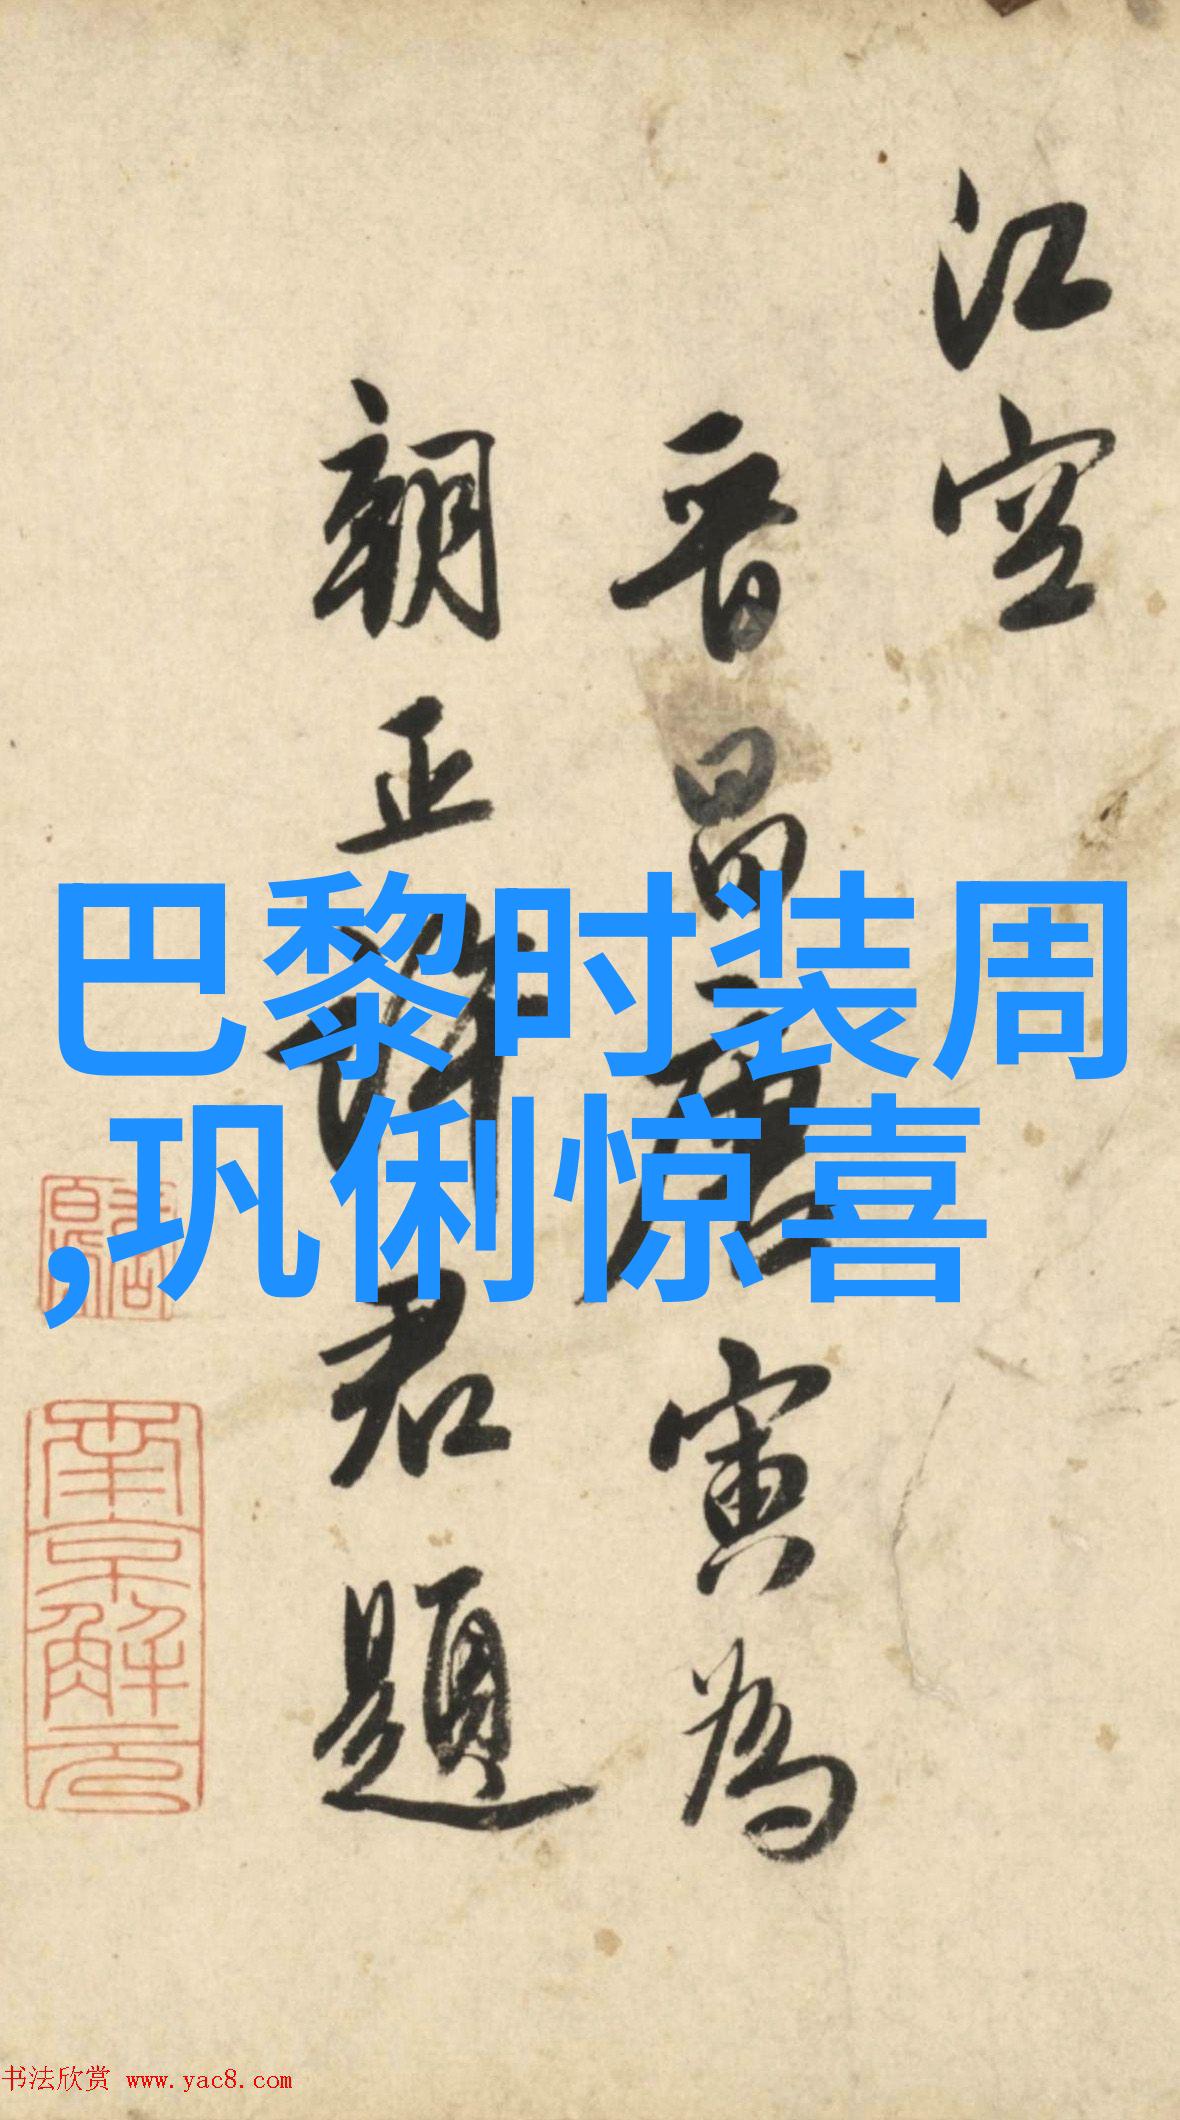 江空
晋昌唐寅為
朝正許君題
南京解元
巴黎时装周
,巩俐惊喜
书法欣赏 www.yac8.com